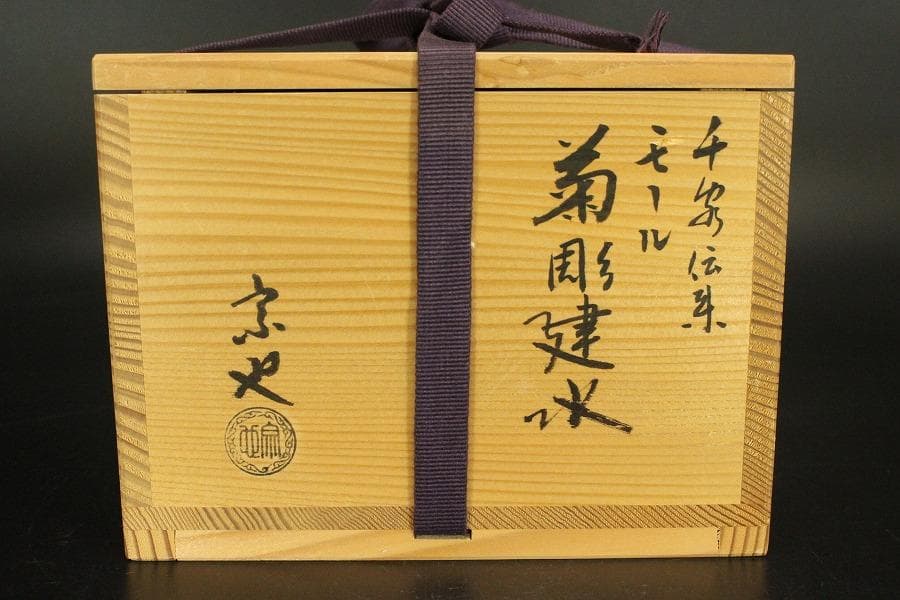 千家伝来
モール
菊彫建水
宗也